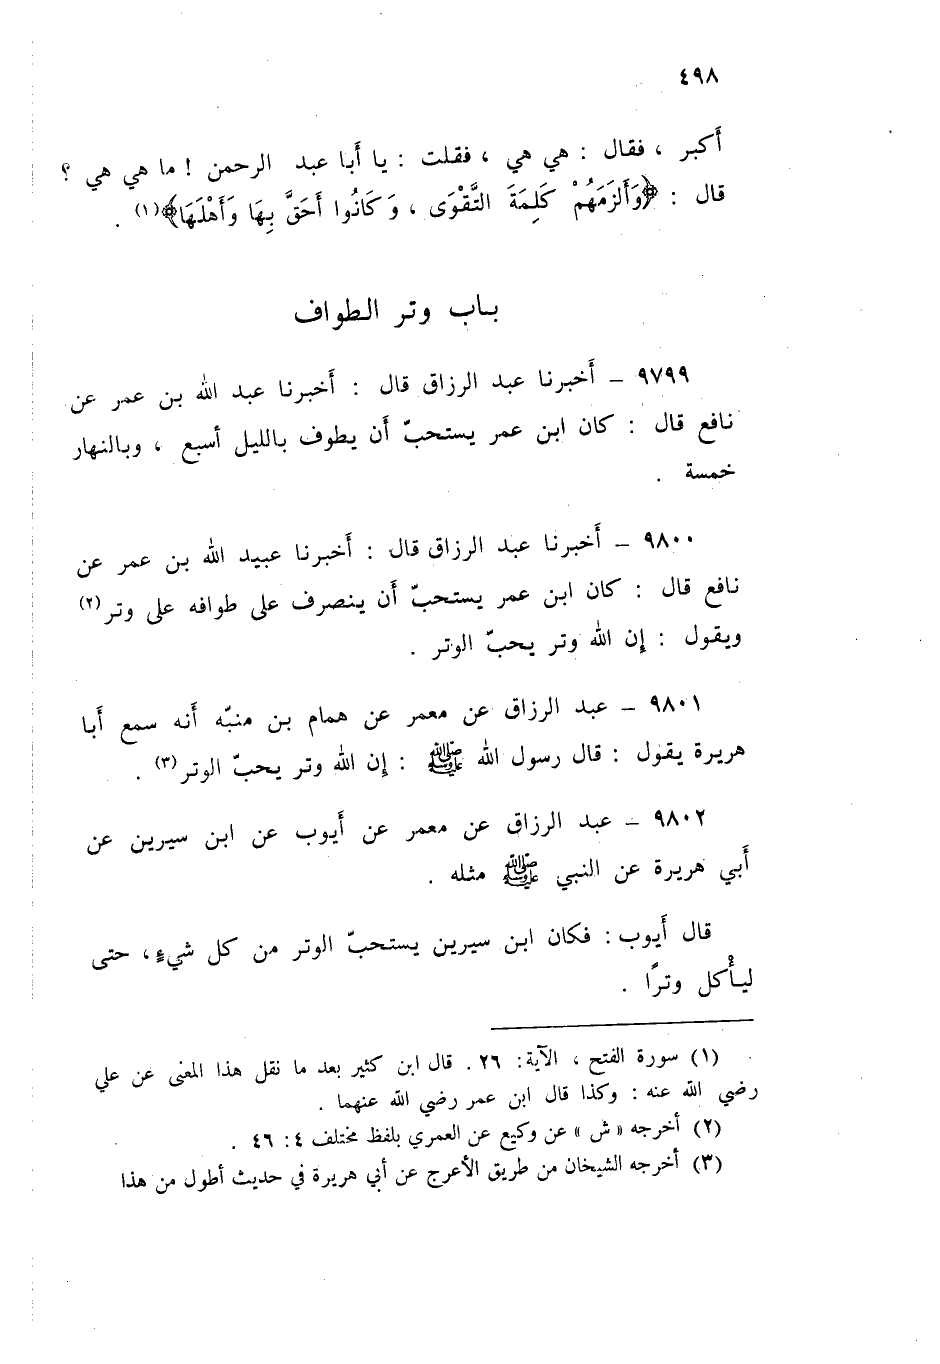 ٤٩٨
أكبر ، فقال : هي هي ، فقلت : يا أبا عبد الرحمن ! ما هي هي ؟
قال : ﴿وَأَلْزَمَهُمْ كَلِمَةَ التَّقْوَى ، وَكَانُوا أَحَقَّ بِهَا وَأَهْلَهَا﴾(١) .
بـاب وتر الطواف
٩٧٩٩ – أخبرنا عبد الرزاق قال : أخبرنا عبد الله بن عمر عن
نافع قال : كان ابن عمر يستحبّ أن يطوف بالليل أسبع ، وبالنهار
خمسة .
٩٨٠٠ – أخبرنا عبد الرزاق قال : أخبرنا عبيد الله بن عمر عن
نافع قال : كان ابن عمر يستحبّ أن ينصرف على طوافه على وتر(٢)
ويقول : إن الله وتر يحبّ الوتر .
٩٨٠١ – عبد الرزاق عن معمر عن همام بن منبّه أنه سمع أبا
هريرة يقول : قال رسول الله ﷺ : إن الله وتر يحبّ الوتر(٣) .
٩٨٠٢ – عبد الرزاق عن معمر عن أيوب عن ابن سيرين عن
أبي هريرة عن النبي ﷺ مثله .
قال أيوب : فكان ابن سيرين يستحبّ الوتر من كل شيءٍ ، حتى
ليأكل وترًا .
(١) سورة الفتح ، الآية : ٢٦ . قال ابن كثير بعد ما نقل هذا المعنى عن علي
رضي الله عنه : وكذا قال ابن عمر رضي الله عنهما .
(٢) أخرجه « ش » عن وكيع عن العمري بلفظ مختلف ٤ : ٤٦ .
(٣) أخرجه الشيخان من طريق الأعرج عن أبي هريرة في حديث أطول من هذا